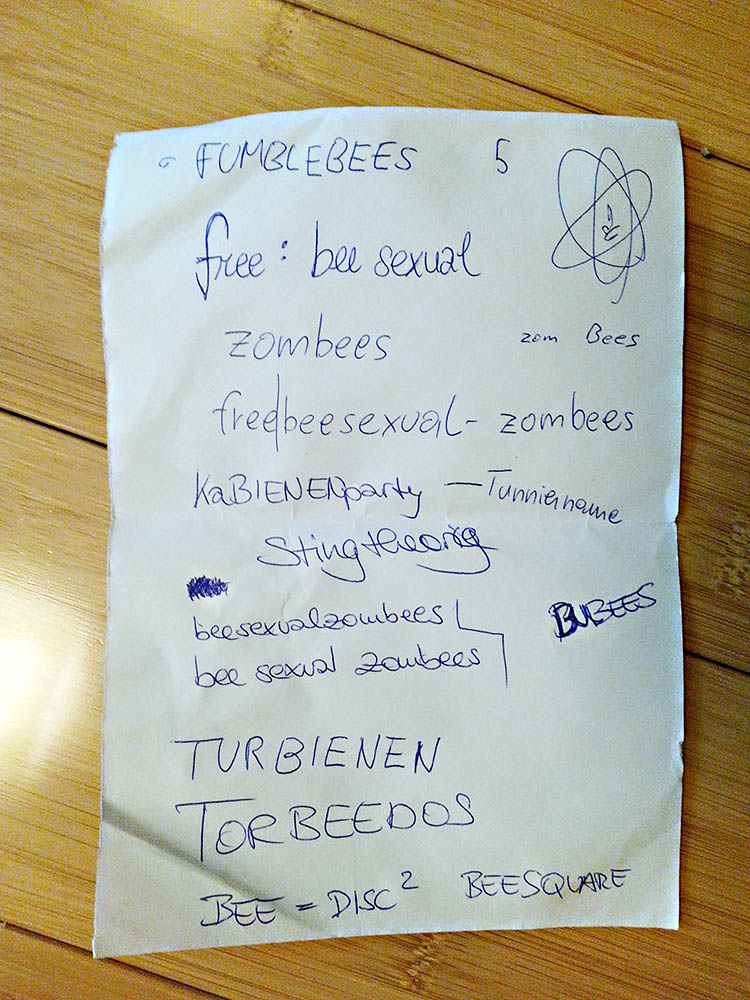 FUMBLEBEES 5
free: bee sexual
zombees zom Bees
free|beesexual- zombees
KaBIENENparty — Turnniername
Stingtheorie
beesexualzombees
BUBEES
bee sexual zombees
TURBIENEN
TORBEEDOS
BEE = DISC² BEESQUARE